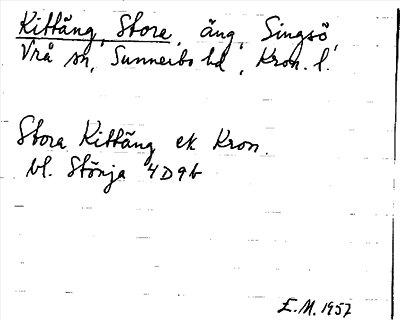 Kittäng, Stora, äng, Singsö,
Vrå sn, Sunnerbo hd, Kron. l.
Stora Kittäng ek Kron.
bl. Stönja 4D9b
E.M. 1957